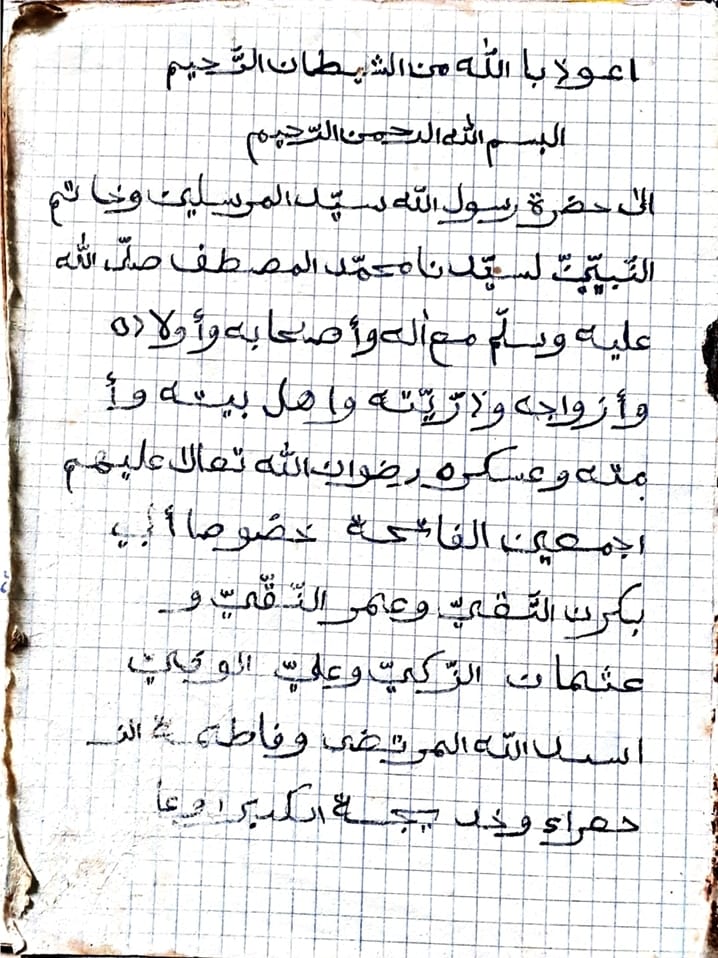 اعولا با اللّٰه من الشيطان الرَّحيم
البسم اللّٰه الرحمن الرّحيم
الىٰ حضرة رسول اللّٰه سيّد المرسلين وخاتم
النّبيّين لسيّدنا محمّد المصطف صلّى اللّٰه
عليه وسلّم مع أٰله وأصحابه وأولاده
وأزواجه ولارّيّته واهل بيته وأ
مته وعسكره رضوان اللّٰه تعالا عليهم
اجمعين الفاتحة خصوصا أبي
بكرن التّقيّ وعمر النّقّيّ و
عثمان الزّكيّ وعليّ الوفيّ
اسد اللّٰه المرتضى وفاطمة الز
حراء وخديجة الكبرا وعا